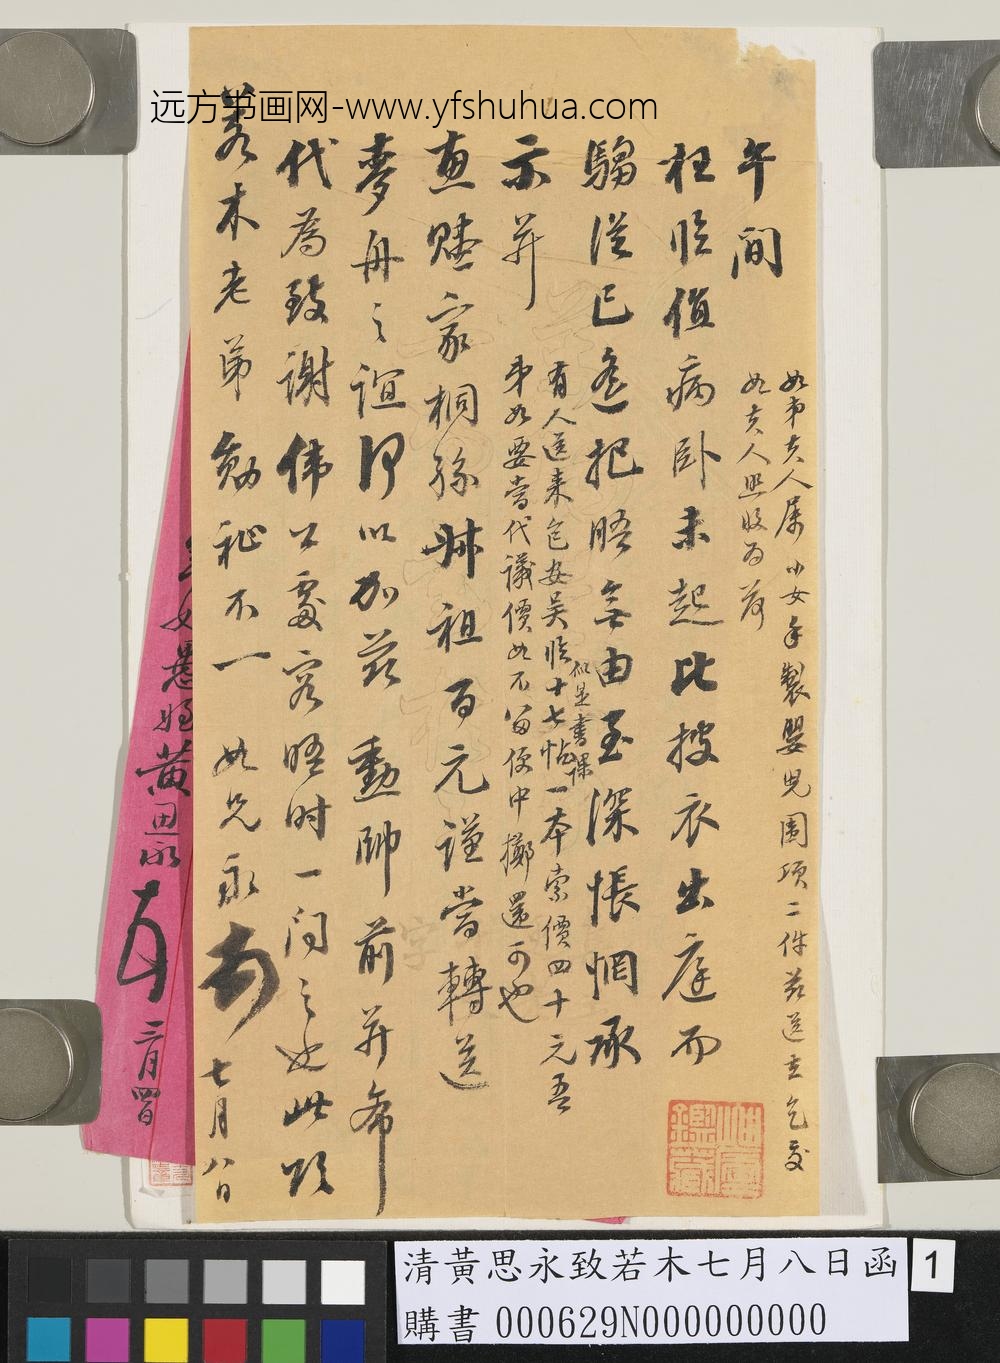 远方书画网-www.yfshuhua.com
如弟夫人屬小女手製嬰兒圍項二件茲送去乞交
如夫人照收為荷
午間
枉臨值病卧未起比披衣出庭而
騶從已遠把晤無由至深悵惘承
示并
惠賻家桐孫姊祖百元謹當轉送
夢舟之誼何以加茲勳帥前并希
代為致謝偉公處容晤時一问之也此頌
若木老弟勛祉不一 如兄永頓 七月八日
有人送來包安吴臨十七帖一本索價四十元吾
似是書课
弟如要當代議價如不留便中擲還可也
黄思永
三月
清黃思永致若木七月八日函
購書 000629N000000000000
1